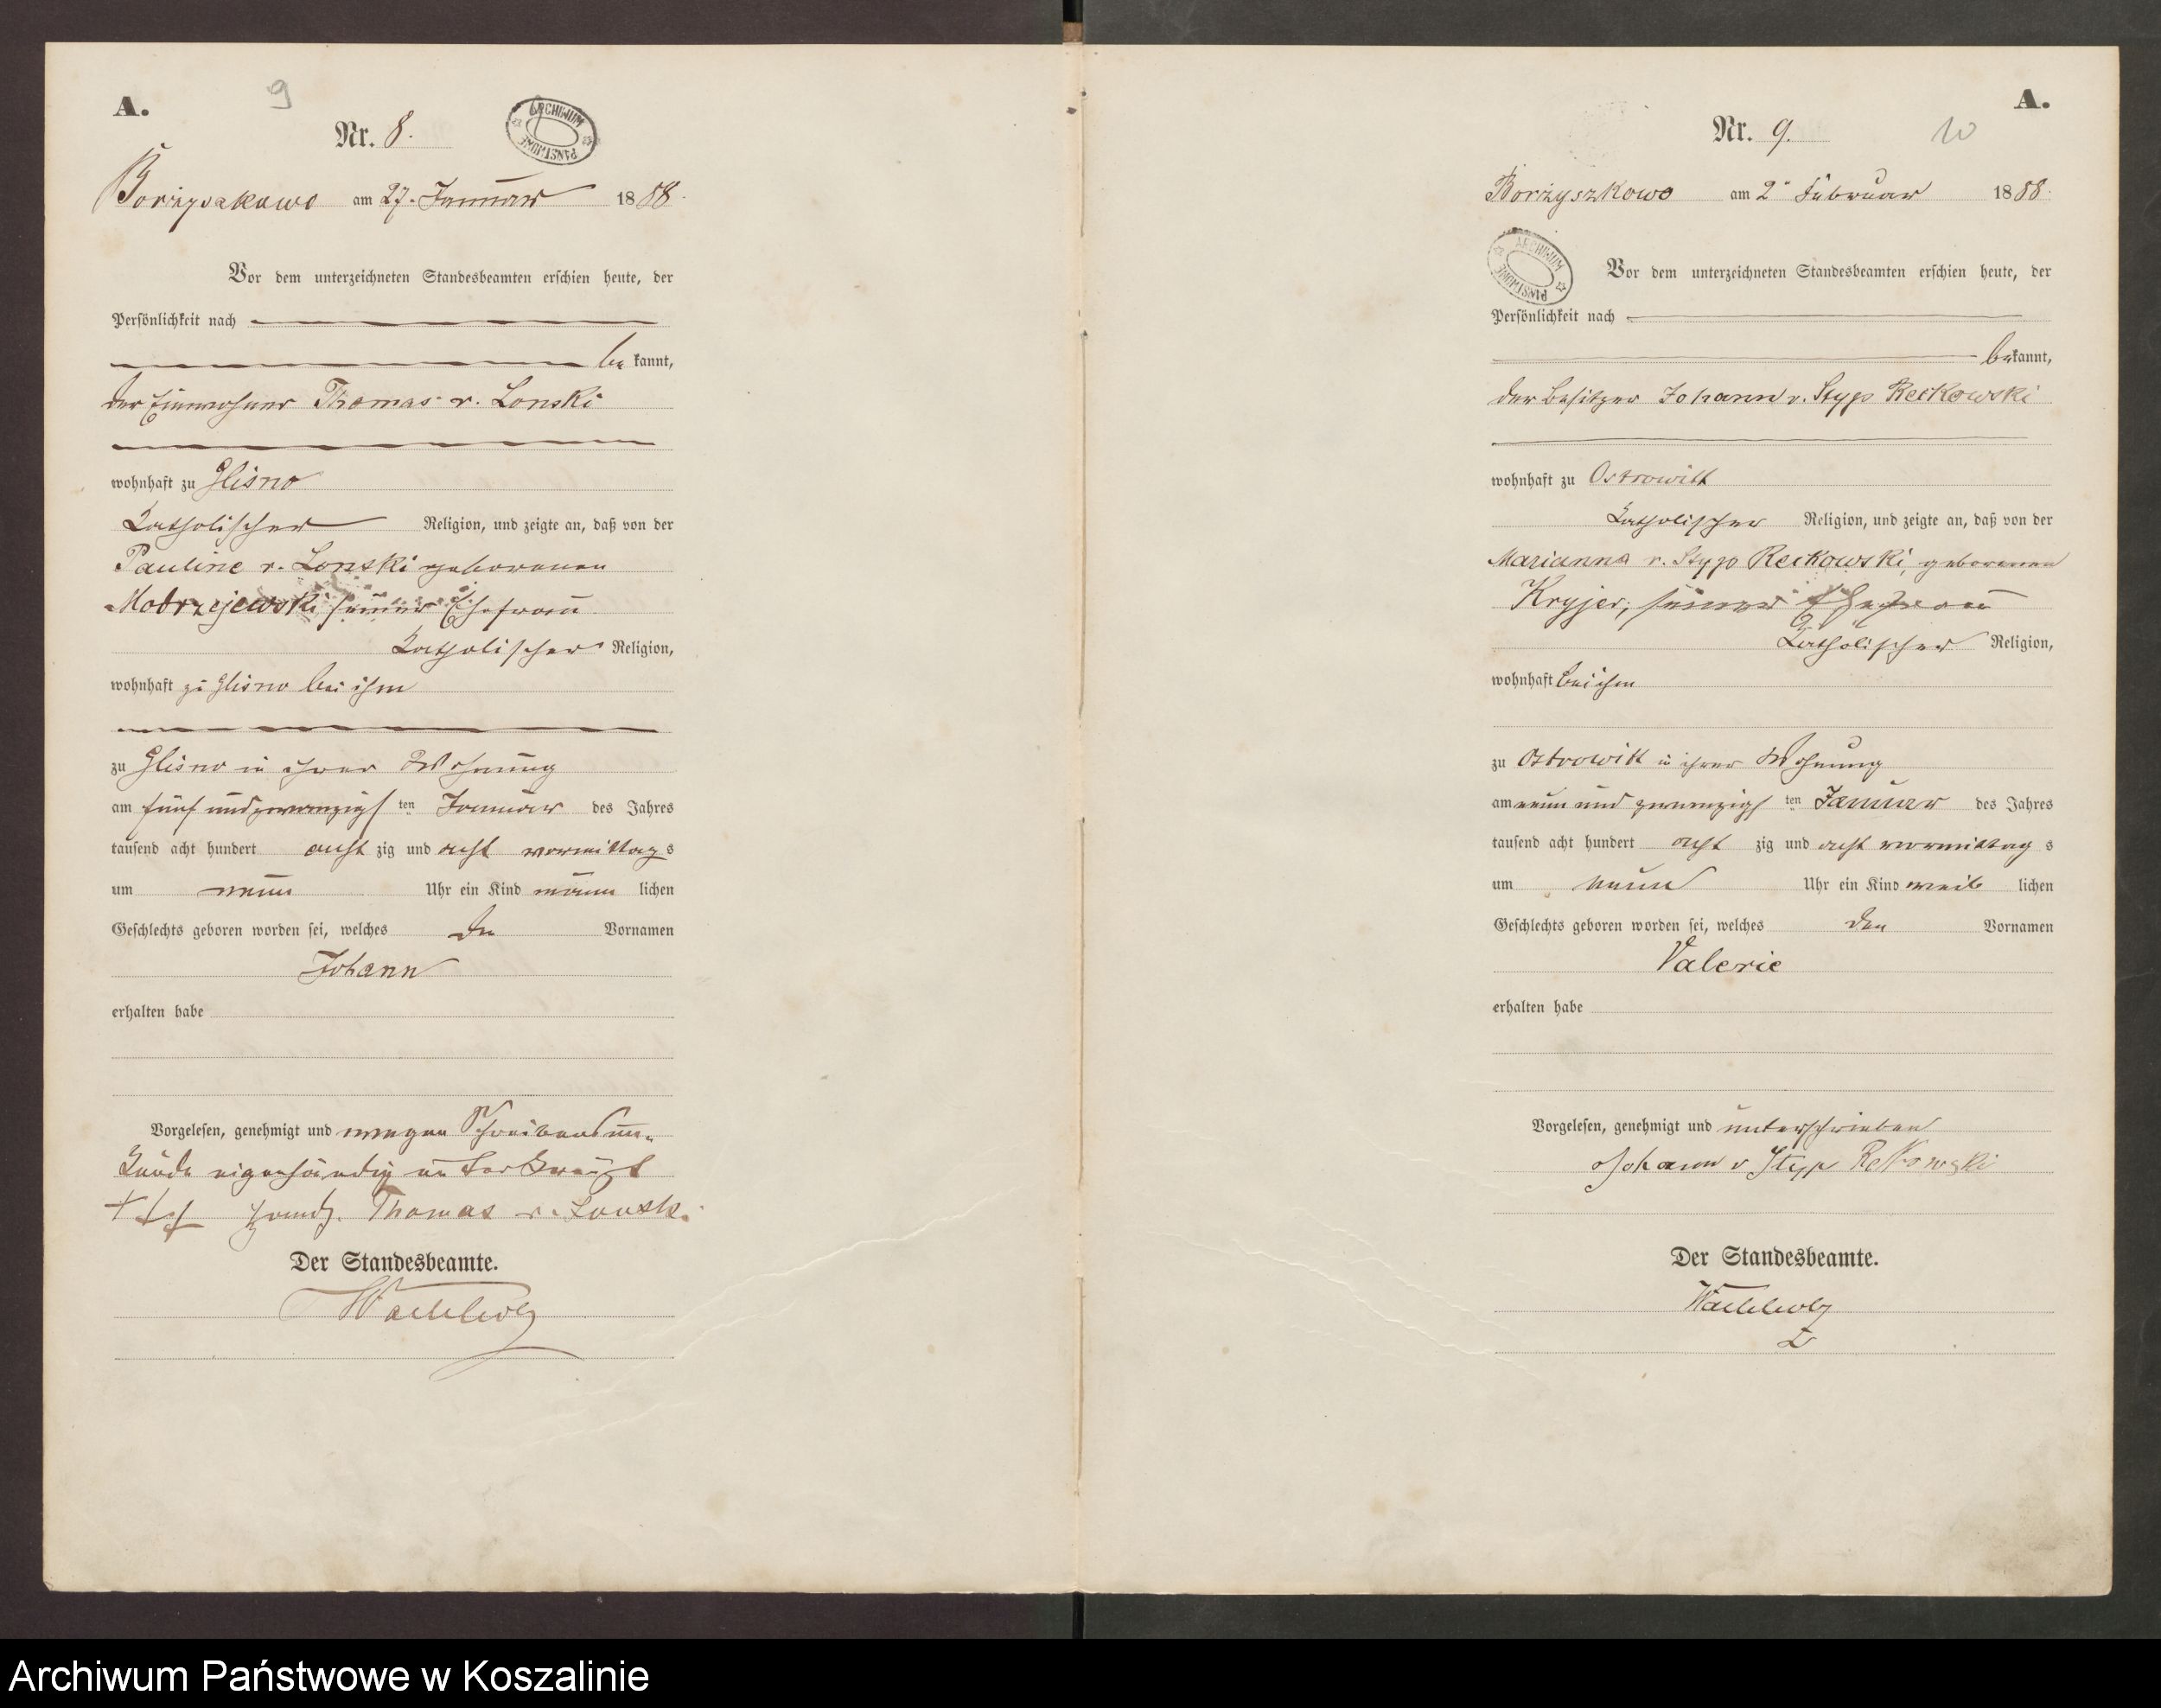 A.
9
Nr. 8.
ARCHIWUM PAŃSTWOWE
Borzyszkowo am 27. Januar 1888.
Vor dem unterzeichneten Standesbeamten erschien heute, der
Persönlichkeit nach
be kannt,
der Einwohner Thomas v. Lonski
wohnhaft zu Glisno
katholischer Religion, und zeigte an, daß von der
Pauline v. Lonski geborenen
Modrzejewski seiner Ehefrau
katholischer Religion,
wohnhaft zu Glisno bei ihm
zu Glisno in ihrer Wohnung
am fünf und zwanzigs ten Januar des Jahres
tausend acht hundert acht zig und acht vormittag s
um neun Uhr ein Kind männ lichen
Geschlechts geboren worden sei, welches den Vornamen
Johann
erhalten habe
Vorgelesen, genehmigt und wegen Schreibensun-
kunde eigenhändig unterkreuzt
+++ Handz. Thomas v. Lonski.
Der Standesbeamte.
Wachholz
A.
Nr. 9.
10
Borzyszkowo am 2ᵗ Februar 1888.
ARCHIWUM PAŃSTWOWE
Vor dem unterzeichneten Standesbeamten erschien heute, der
Persönlichkeit nach
bekannt,
der Besitzer Johann v. Styp Reckowski
wohnhaft zu Ostrowitt
katholischer Religion, und zeigte an, daß von der
Marianna v. Styp Reckowski, geborenen
Kryjer, seiner Ehefrau
katholischer Religion,
wohnhaft bei ihm
zu Ostrowitt in ihrer Wohnung
am neun und zwanzigs ten Januar des Jahres
tausend acht hundert acht zig und acht vormittag s
um neun Uhr ein Kind weib lichen
Geschlechts geboren worden sei, welches den Vornamen
Valerie
erhalten habe
Vorgelesen, genehmigt und unterschrieben
Johann v Styp Rekowski
Der Standesbeamte.
Wachholz
Archiwum Państwowe w Koszalinie